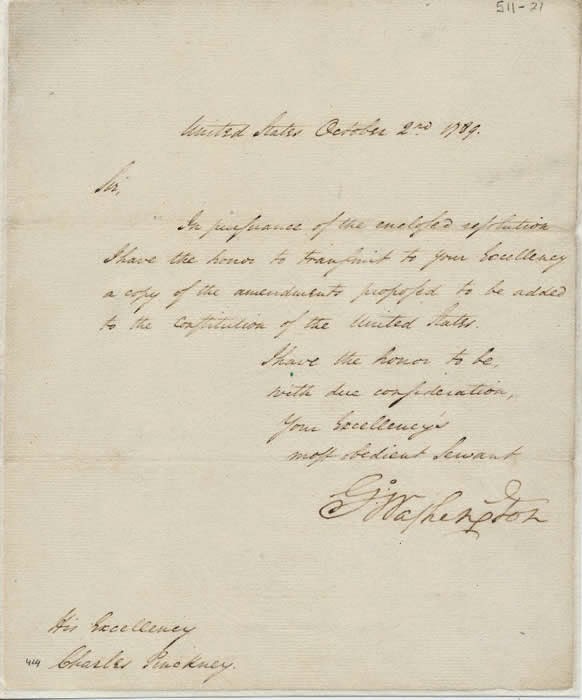 511-21
United States October 2nd 1789.
Sir,
In pursuance of the enclosed resolution
I have the honor to transmit to your Excellency
a copy of the amendments proposed to be added
to the constitution of the United States.
I have the honor to be,
with due consideration,
Your Excellency's
most obedient Servant
Go: Washington
His Excellency
Charles Pinckney.